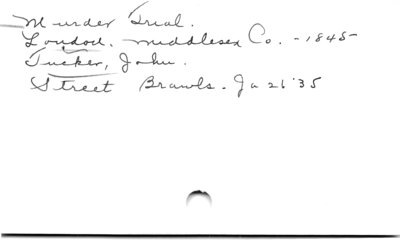 Murder Trial.
London. Middlesex Co. - 1845-
Tucker, John.
Street Brawls. Ja 26 '35